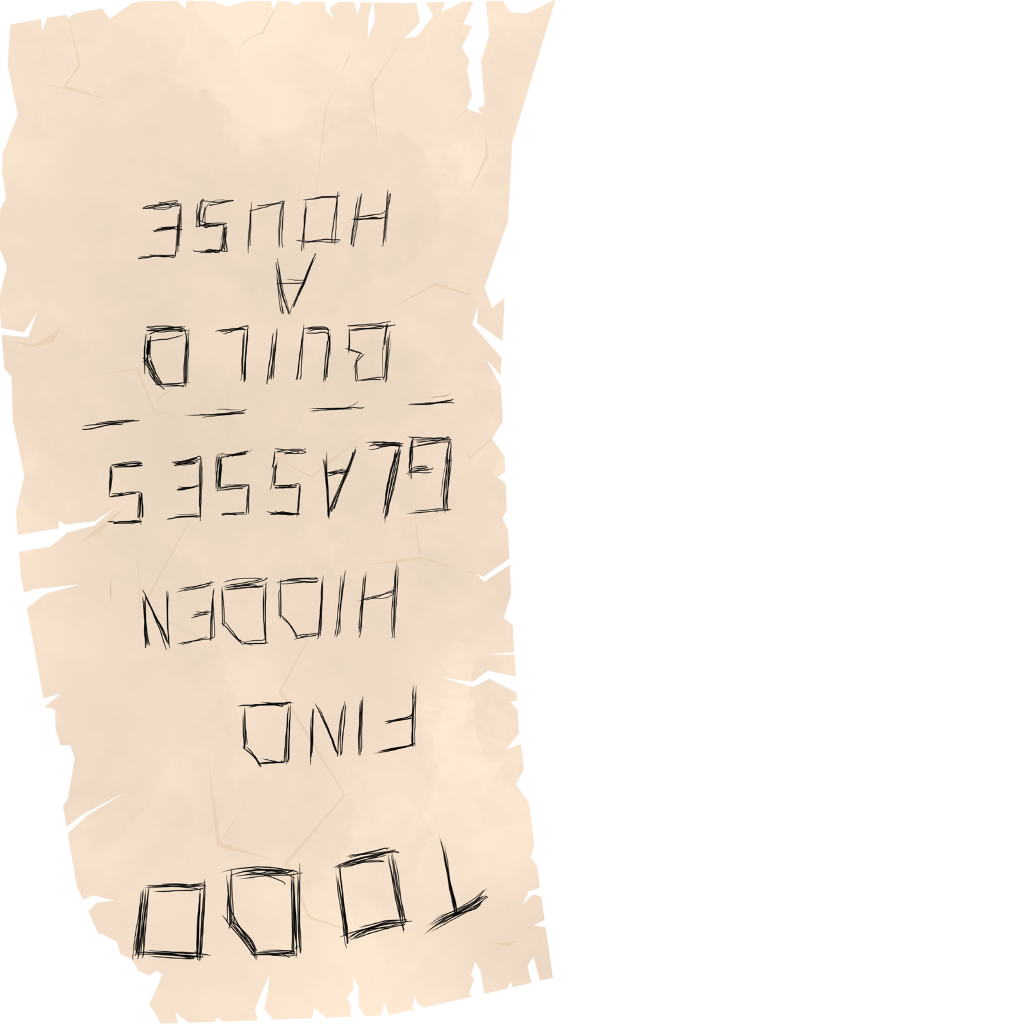 TODO
FIND
HIDDEN
GLASSES
BUILD
A
HOUSE